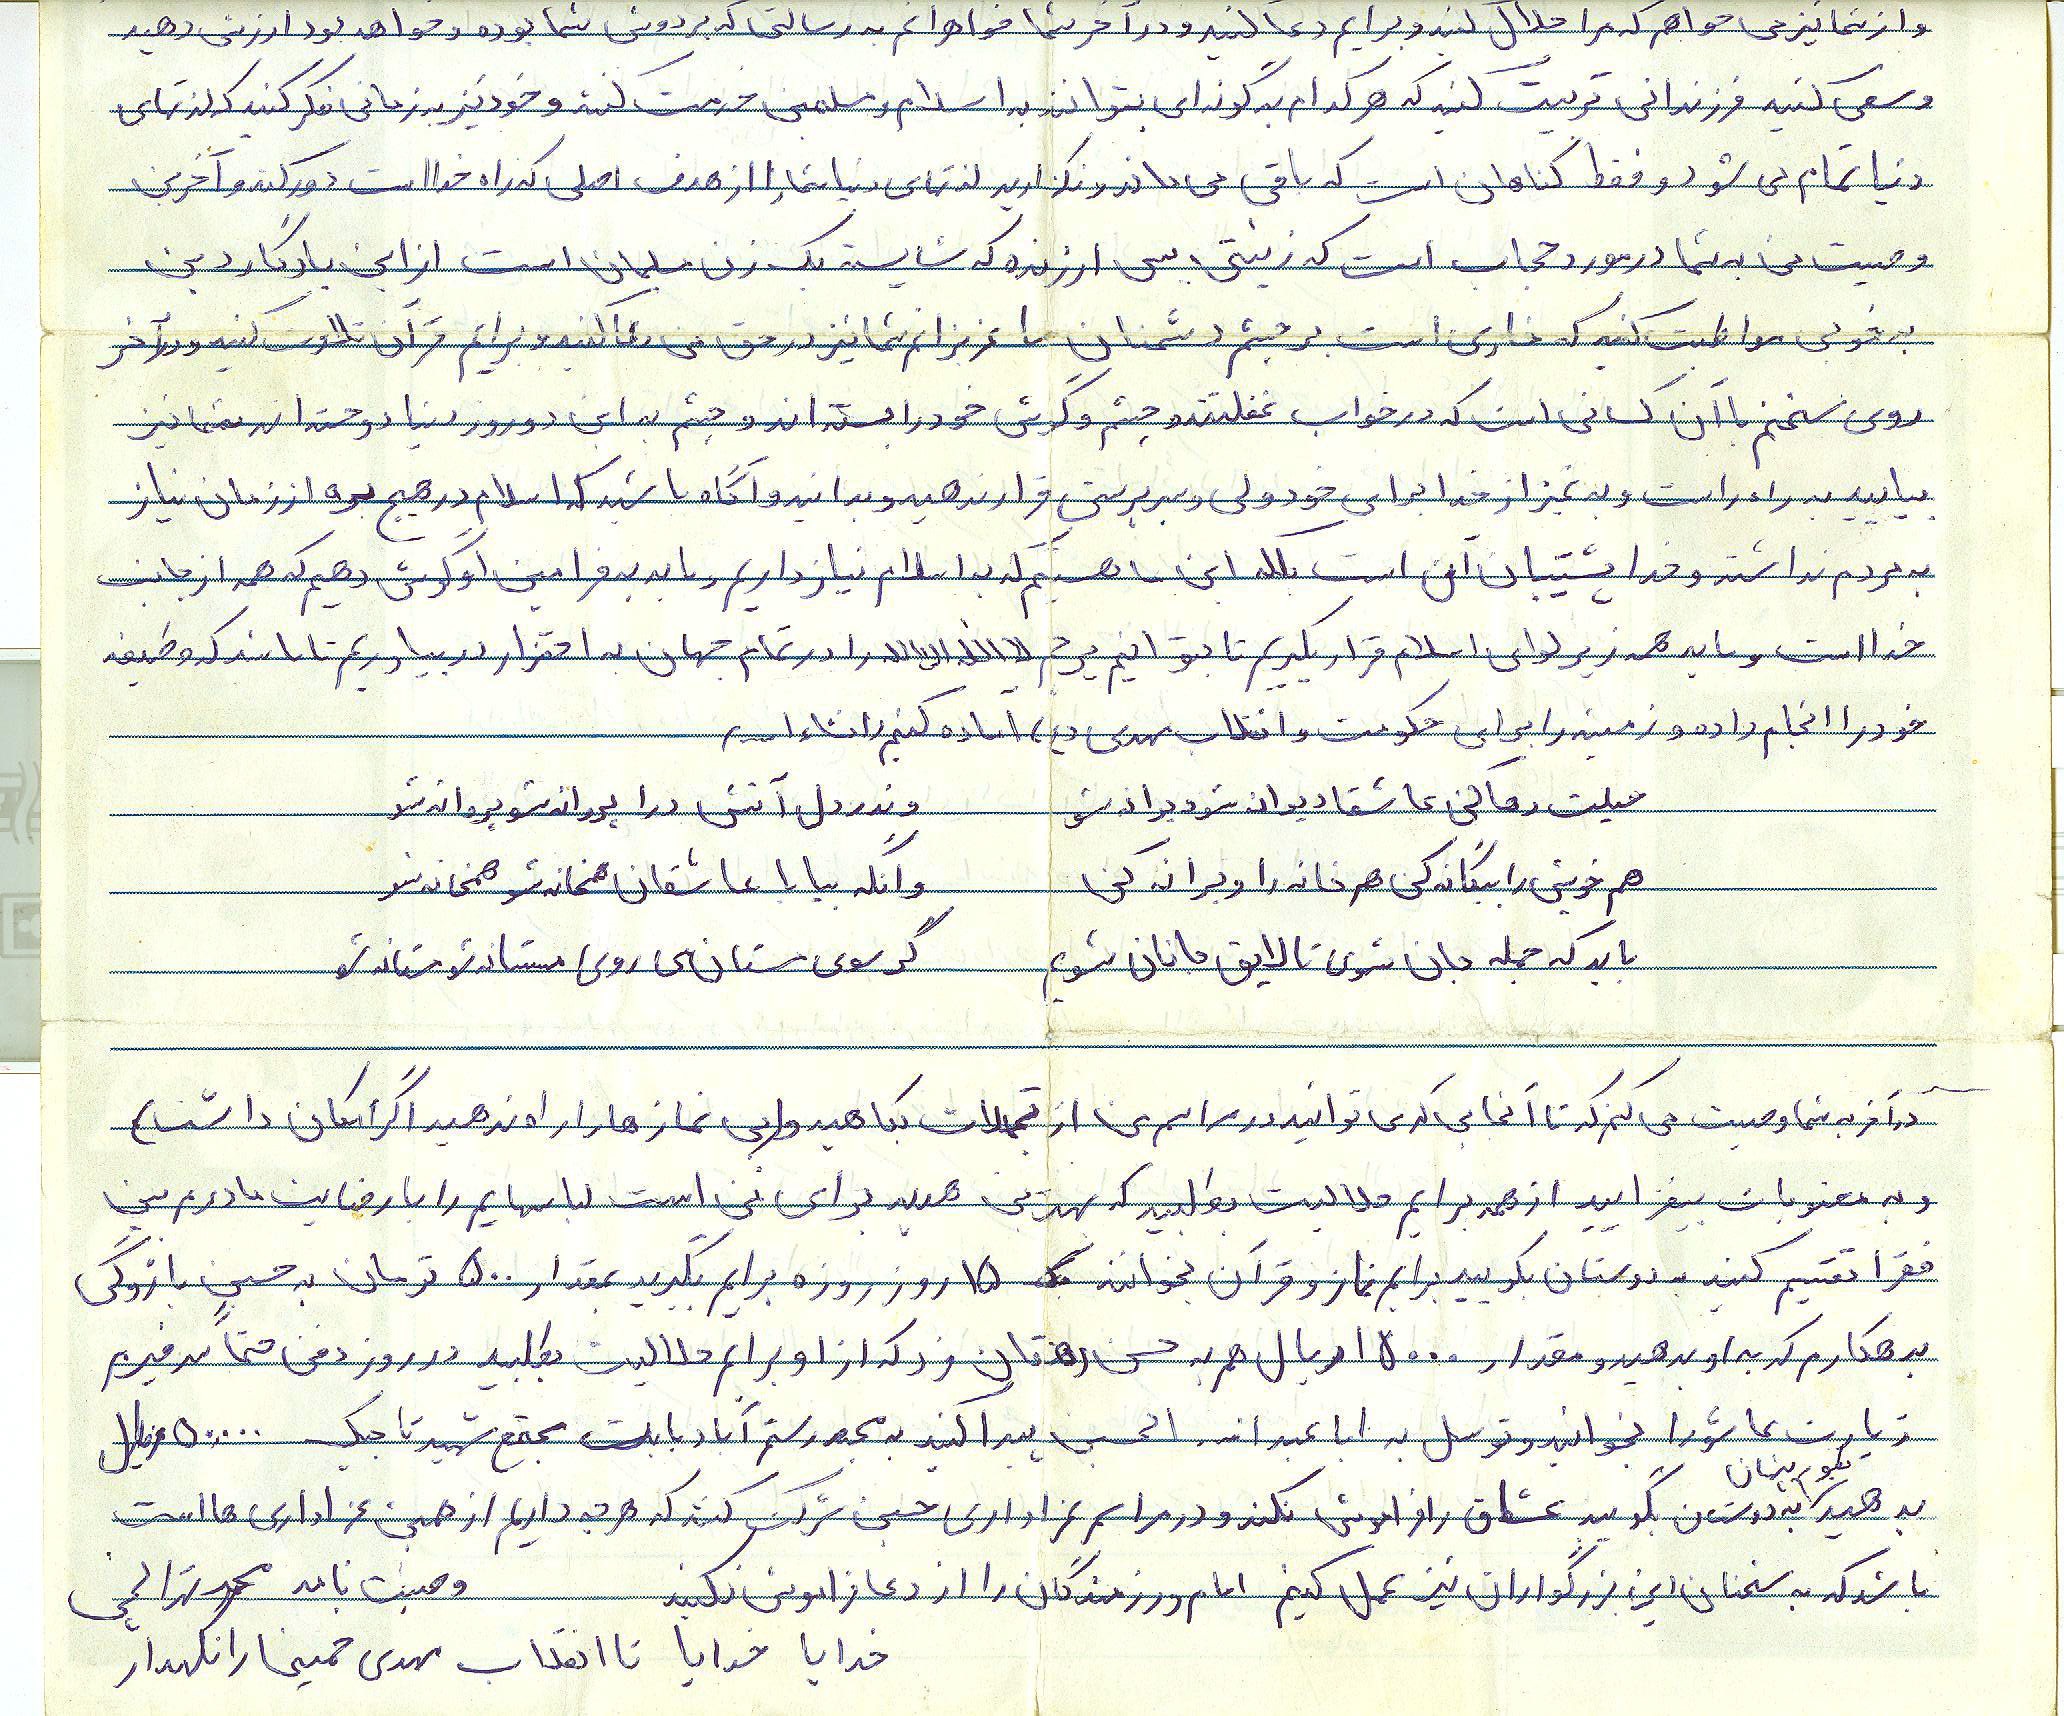 و از شما نیز می خواهم که مرا حلال کنید و برایم دعا کنید و در آخر شما خواهرانم به رسالتی که بر دوش شما بوده و خواهد بود ارزش دهید
و سعی کنید فرزندانی تربیت کنید که هر کدام به گونه ای بتوانند به اسلام و مسلمین خدمت کنند و خود نیز به زمانی فکر کنید که لذتهای
دنیا تمام می شود و فقط گناهان است که باقی می ماند و نگذارید لذتهای دنیا شما را از هدف اصلی که راه خدا است دور کند و آخرین
وصیت من به شما در مورد حجاب است که زینتی بس ارزنده که شایسته یک زن مسلمان است از این یادگار دین
به خوبی مواظبت کنید که خاری است بر چشم دشمنان ما عزیزانم شما نیز در حق من دعا کنید و برایم قرآن تلاوت کنید و در آخر
روی سخنم با آن کسانی است که در خواب غفلتند و چشم و گوش خود را بسته اند و چشم به این دو روز دنیا دوخته اند شما نیز
بیایید به راه راست و به غیر از خدا برای خود ولی و سرپرستی قرار ندهید و بدانید و آگاه باشید که اسلام در هیچ برهه از زمان نیاز
به مردم نداشته و خدا پشتیبان آن است بلکه این ما هستیم که به اسلام نیاز داریم و باید به فرامین او گوش دهیم که همه از جانب
خدا است و باید همه زیر لوای اسلام قرار بگیریم تا بتوانیم پرچم لا اله الا الله را در تمام جهان به اهتزار در بیاوریم تا بانند که وظیفه
خود را انجام داده و زمینه را برای حکومت و انقلاب مهدی (ع) آماده کنیم انشاء الله
حیلت رها کن عاشقا دیوانه شو دیوانه شو وندر دل آتش درا پروانه شو پروانه شو
هم خویش را بیگانه کن هم خانه را ویرانه کن وآنگه بیا با عاشقان همخانه شو همخانه شو
باید که جمله جان شوی تا لایق جانان شوی گر سوی مستان می روی مستانه شو مستانه شو
در آخر به شما وصیت می کنم که تا آنجایی که می توانید در مراسم من از تجملات بکاهید و بی نمازها را راه ندهید اگر امکان داشت)
و به معنویات بیفزایید از همه برایم حلالیت بطلبید که بهترین هدیه برای من است لباسهایم را با رضایت مادرم بین
فقرا تقسیم کنید به دوستان بگویید برایم نماز و قرآن بخوانند ۱۵ روز روزه برایم بگیرید بمقدار ۵۰۰ تومان به حسین بازوکی
بدهکارم که به او بدهید و مقدار ۱۵۰۰۰ ریال هم به حسن دهقان فرد که از او برایم حلالیت بطلبید در روز دفن حتماً سر قبرم
زیارت عاشورا بخوانید و توسل به ابا عبدالله الحسین پیدا کنید به مسجد رستم آباد بابت مجتمع شهید تاجیک ۵۰۰۰۰ ریال
بدهید به دوستان بگویید عشاق را فراموش نکنند و در مراسم عزاداری حسین شرکت کنند که هر چه داریم از همین عزاداری ها است
باشد که به سخنان این بزرگواران نیز عمل کنیم امام و رزمندگان را از دعا فراموش نکنید وصیت نامه محمد
خدایا خدایا تا انقلاب مهدی خمینی را نگهدار